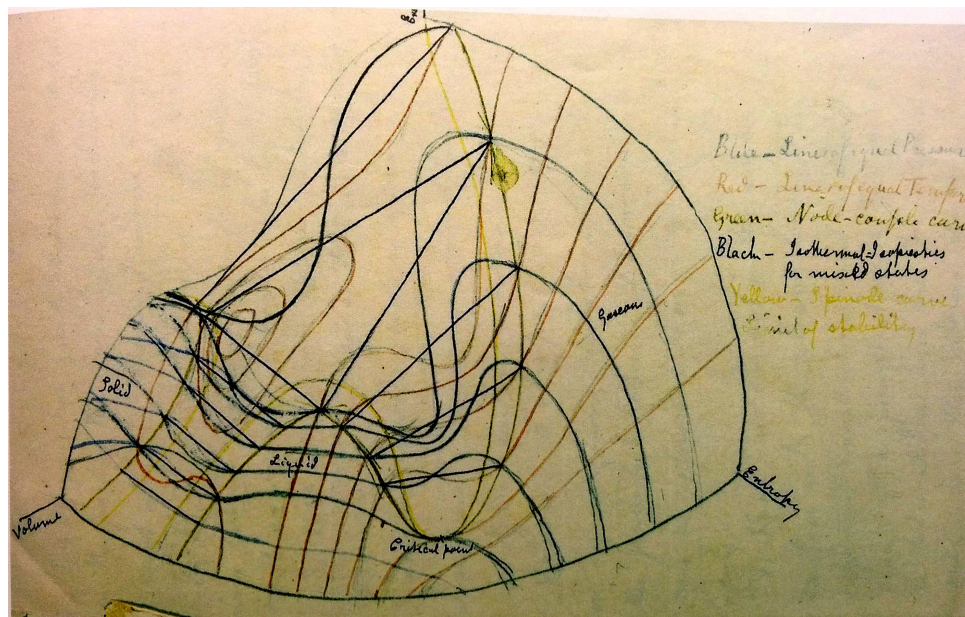 Blue – Lines of equal Pressure
Red – Lines of equal Temper
Green – Node-couple curv
Black – Isothermal-Isopiestics
for mixed states
Yellow – Spinode curve
Limit of stability
Gaseous
Solid
Liquid
Entropy
Volume
Critical point